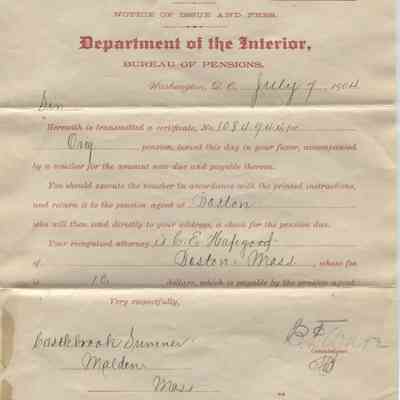 NOTICE OF ISSUE AND FEES.
Department of the Interior,
BUREAU OF PENSIONS.
Washington, D. C., July 7, 1904
Sir
Herewith is transmitted a certificate, No. 1084944 for
Orig pension, issued this day in your favor, accompanied
by a voucher for the amount now due and payable thereon.
You should execute the voucher in accordance with the printed instructions,
and return it to the pension agent at Boston
who will then send directly to your address, a check for the pension due.
Your recognized attorney is C. E. Hapgood
of Boston, Mass, whose fee
is 10 dollars, which is payable by the pension agent
Very respectfully,
Castlebrook Sumner
Malden
Mass
Commissioner.